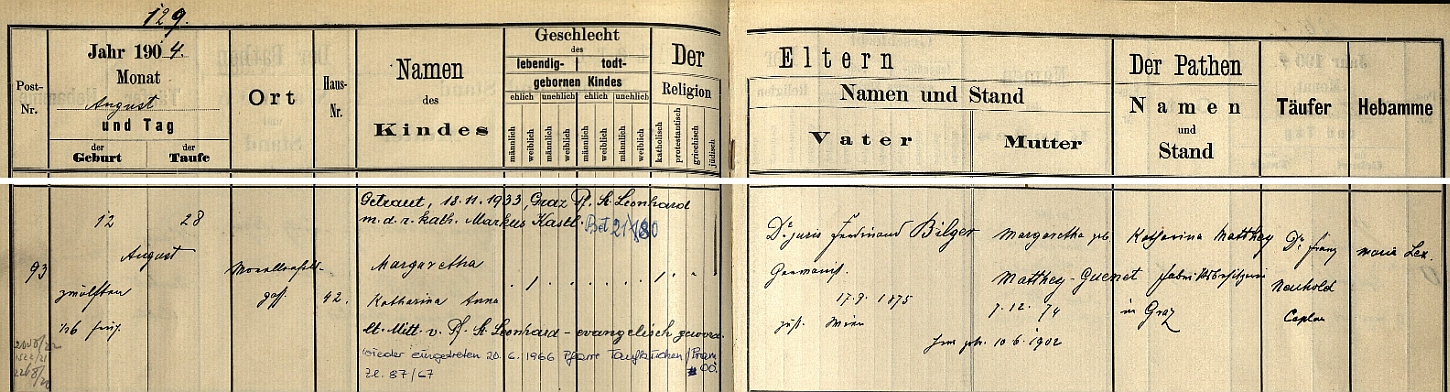 129.
Jahr 1904.
Monat
August
und Tag
der Geburt
der Taufe
Post-Nr.
Ort
Haus-Nr.
Namen
des
Kindes
Geschlecht
des
lebendig- todt-
gebornen Kindes
ehlich unehlich ehlich unehlich
männlich weiblich männlich weiblich männlich weiblich männlich weiblich
Der
Religion
katholisch protestantisch griechisch jüdisch
Eltern
Namen und Stand
Vater
Mutter
Der Pathen
Namen
und
Stand
Täufer
Hebamme
93
12 28
August
zwölften
1/26 früh.
42.
Getraut, 18.11.1933, Graz Pf. St. Leonhard
m. d. r. kath. Markus Kastl.
Margaretha
Katharina Anna
lt. Mitt. v. Pf. St. Leonhard - evangelisch geword.
wieder eingetreten 20.6.1966 Pfarre Taufkirchen/Pram
Zl. 87/67 OÖ.
Dr juris Ferdinand Bilger
Germanist.
17.9. 1875
zust. Wien
Margaretha geb.
Matthey-Guenet
7.12. 74
10.6.1902
Katharina Matthey
Fabriksbesitzerin
in Graz
Dr Franz
Neuhold
Caplan
Maria Lex.